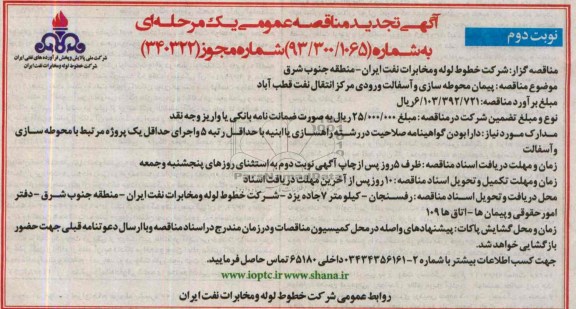 آگهی تجدید مناقصه عمومی یک مرحله‌ای
به شماره (۹۳/۳۰۰/۱۰۶۵) شماره مجوز (۳۴۰۳۲۲)
نوبت دوم
شرکت ملی پالایش و پخش فرآورده های نفتی ایران
شرکت خطوط لوله و مخابرات نفت ایران
مناقصه گزار: شرکت خطوط لوله و مخابرات نفت ایران - منطقه جنوب شرق
موضوع مناقصه: پیمان محوطه سازی و آسفالت ورودی مرکز انتقال نفت قطب آباد
مبلغ برآورد مناقصه: ۶/۱۰۳/۳۹۲/۷۲۱ ریال
نوع و مبلغ تضمین شرکت در مناقصه: مبلغ ۲۵/۰۰۰/۰۰۰ ریال به صورت ضمانت نامه بانکی یا واریز وجه نقد
مدارک مورد نیاز: دارا بودن گواهینامه صلاحیت در رشته راهسازی یا ابنیه با حداقل رتبه ۵ و اجرای حداقل یک پروژه مرتبط با محوطه سازی
و آسفالت
زمان و مهلت دریافت اسناد مناقصه: ظرف ۵ روز پس از چاپ آگهی نوبت دوم به استثنای روزهای پنجشنبه و جمعه
زمان و مهلت تکمیل و تحویل اسناد مناقصه: ۱۰ روز پس از آخرین مهلت دریافت اسناد
محل دریافت و تحویل اسناد مناقصه: رفسنجان - کیلومتر ۷ جاده یزد - شرکت خطوط لوله و مخابرات نفت ایران - منطقه جنوب شرق - دفتر
امور حقوقی و پیمان ها - اتاق ها ۱۰۹
زمان و محل گشایش پاکات: پیشنهادهای واصله در محل کمیسیون مناقصات و در زمان مندرج در اسناد مناقصه و با ارسال دعوتنامه قبلی جهت حضور
بازگشایی خواهد شد.
جهت کسب اطلاعات بیشتر با شماره ۲-۰۳۴۳۴۳۵۶۱۶۱ داخلی ۶۵۱۸۰ تماس حاصل فرمایید.
www.ioptc.ir www.shana.ir
روابط عمومی شرکت خطوط لوله و مخابرات نفت ایران